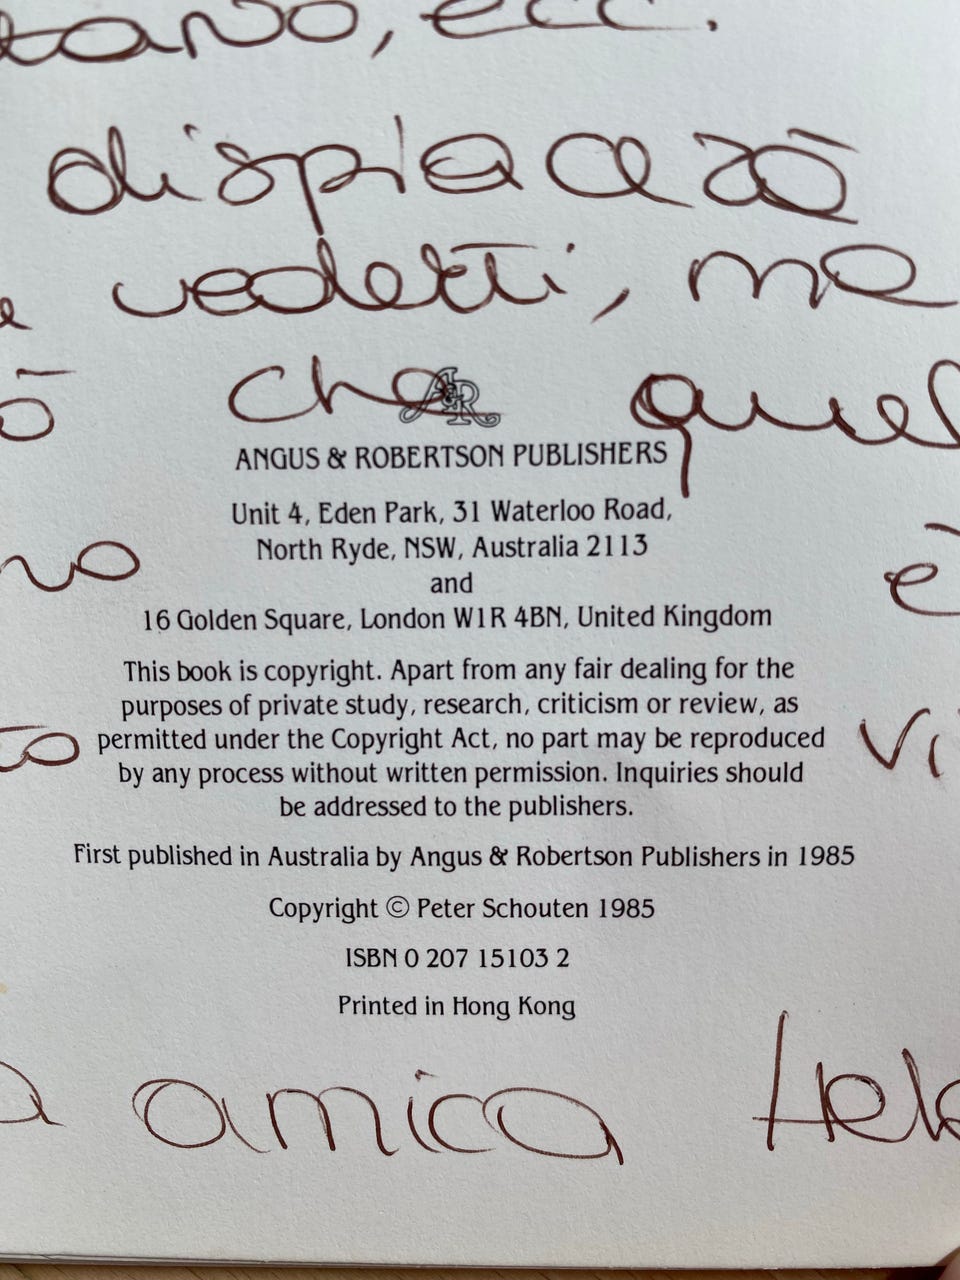 tano, ecc.
dispiacerà
vederti, ma
ò che quel
A&R
ANGUS & ROBERTSON PUBLISHERS
Unit 4, Eden Park, 31 Waterloo Road,
North Ryde, NSW, Australia 2113
no è
and
16 Golden Square, London W1R 4BN, United Kingdom
This book is copyright. Apart from any fair dealing for the
purposes of private study, research, criticism or review, as
to vi
permitted under the Copyright Act, no part may be reproduced
by any process without written permission. Inquiries should
be addressed to the publishers.
First published in Australia by Angus & Robertson Publishers in 1985
Copyright © Peter Schouten 1985
ISBN 0 207 15103 2
Printed in Hong Kong
a amica Hel